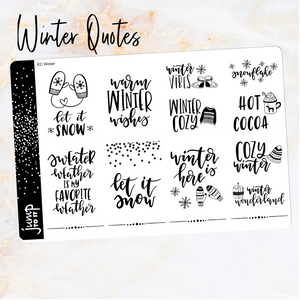 Winter Quotes
EC Winter
let it
SNOW
warm
WINTER
wishes
winter
VIBES
snowflake
WINTER
COZY
HOT
COCOA
SWEATER
weather
IS MY
FAVORITE
weather
let it
snow
winter
here
is
COZY
winter
winter
wonderland
jump
TO IT